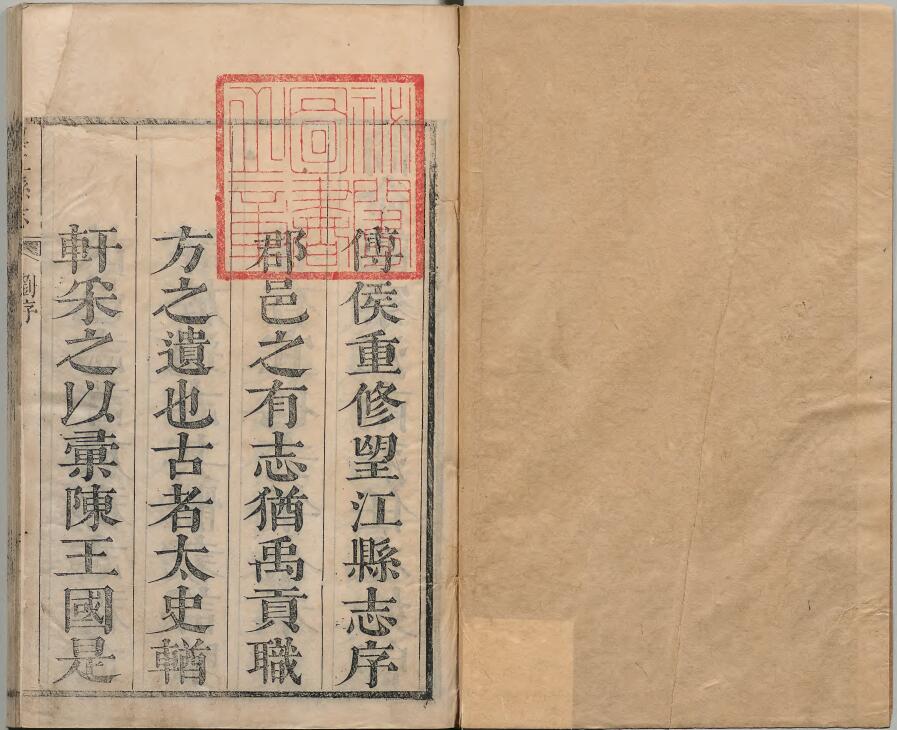 傅侯重修望江縣志序
郡邑之有志猶禹貢職
方之遺也古者太史輶
軒采之以彙陳王國是
劉序